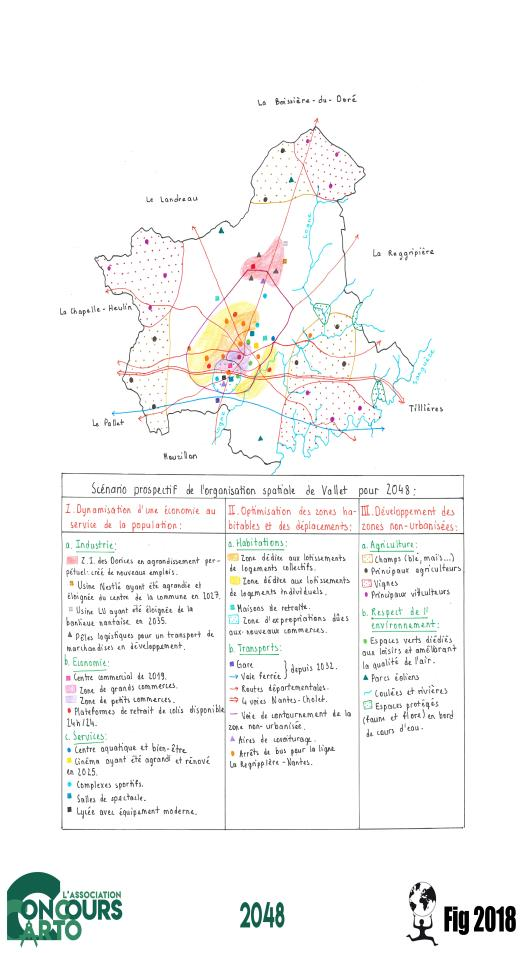 La Boissière-du-Doré
Le Landreau
Logne
La Regrippière
La Chapelle-Heulin
Sanguèze
Le Pallet
Logne
Tillières
Mouzillon
Scénario prospectif de l'organisation spatiale de Vallet pour 2048:
I. Dynamisation d'une économie au
service de la population:
a. Industrie:
Z.I. des Dorices en agrandissement per-
pétuel: créé de nouveaux emplois.
Usine Nestlé ayant été agrandie et
éloignée du centre de la commune en 2027.
Usine LU ayant été éloignée de la
banlieue nantaise en 2035.
Pôles logistiques pour un transport de
marchandises en développement.
b. Économie:
Centre commercial de 2019.
Zone de grands commerces.
Zone de petits commerces.
Plateformes de retrait de colis disponible
24h/24.
c. Services:
Centre aquatique et bien-être.
Cinéma ayant été agrandi et rénové
en 2025.
Complexes sportifs.
Salles de spectacle.
Lycée avec équipement moderne.
II. Optimisation des zones ha-
bitables et des déplacements:
a. Habitations:
Zone dédiée aux lotissements
de logements collectifs.
Zone dédiée aux lotissements
de logements individuels.
Maisons de retraite.
Zone d'expropriations dûes
aux nouveaux commerces.
b. Transports:
Gare
Voie ferrée } depuis 2032.
Routes départementales.
4 voies Nantes-Cholet.
Voie de contournement de la
zone non-urbanisée.
Aires de covoiturage.
Arrêts de bus pour la ligne
La Regrippière-Nantes.
III. Développement des
zones non-urbanisées:
a. Agriculture:
Champs (blé, maïs...)
Principaux agriculteurs
Vignes
Principaux viticulteurs
b. Respect de l'
environnement:
Espaces verts dédiés
aux loisirs et améliorant
la qualité de l'air.
Parcs éoliens
Coulées et rivières
Espaces protégés
(faune et flore) en bord
de cours d'eau.
L'ASSOCIATION
CONCOURS
CARTO
2048
Fig 2018